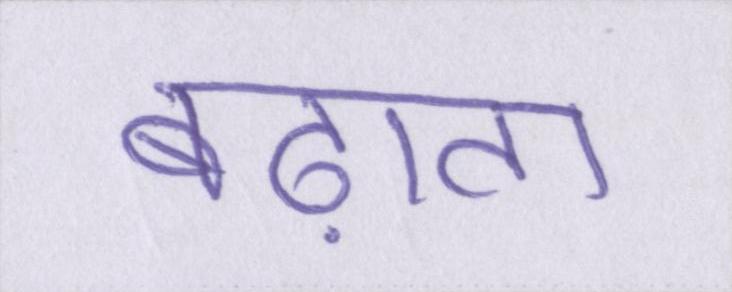 बढ़ाता